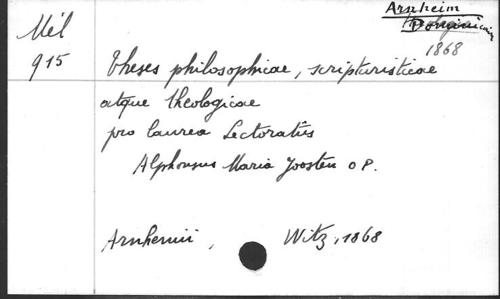 Arnheim
Dominicain
1868
Mél
915
Theses philosophicae, scripturisticae
atque theologicae
pro laurea Lectoratûs
Alphonsus Maria Joosten O P.
Arnhemii, Witz, 1868